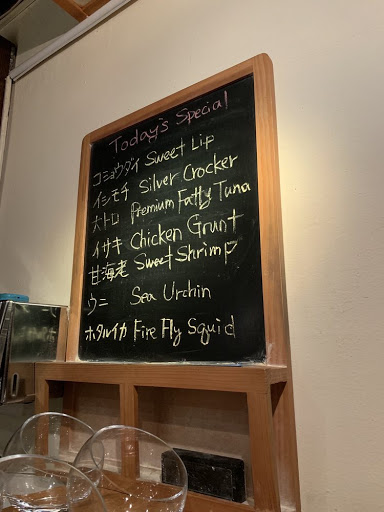 Today's Special
コショウダイ Sweet Lip
イシモチ Silver Crocker
大トロ Premium Fatty Tuna
イサキ Chicken Grunt
甘海老 Sweet Shrimp
ウニ Sea Urchin
ホタルイカ Fire Fly Squid